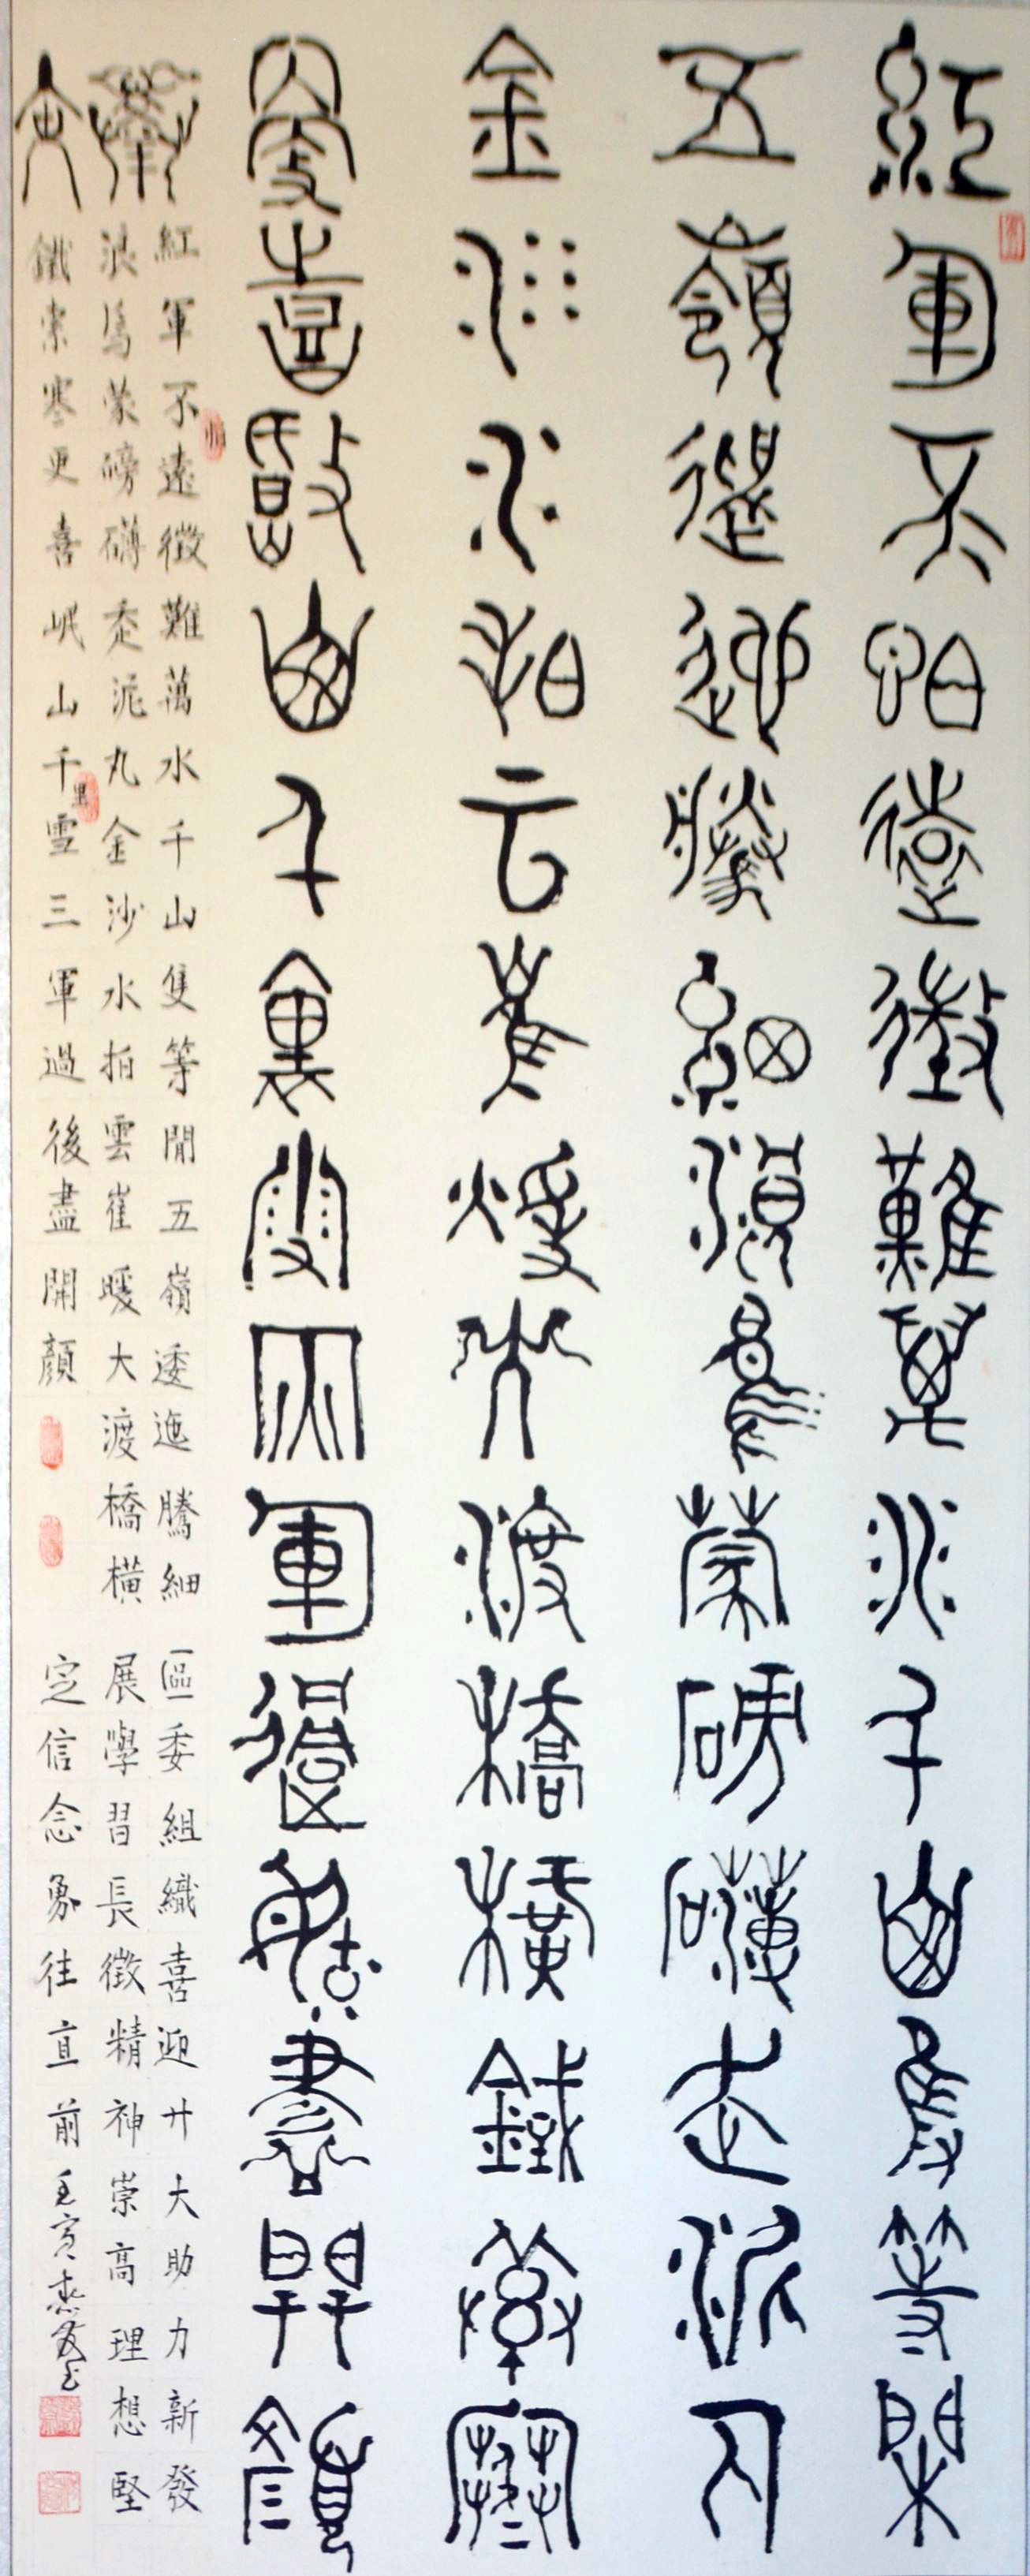 紅軍不怕遠徵難萬水千山隻等閑
五嶺逶迤騰細浪烏蒙磅礴走泥丸
金沙水拍雲崖暖大渡橋橫鐵索寒
更喜岷山千里雪三軍過後盡開顏
紅軍不怕遠徵難萬水千山隻等閒五嶺逶迤騰細
浪烏蒙磅礴走泥丸金沙水拍雲崔暖大渡橋橫
鐵索寒更喜岷山千里雪三軍過後盡開顏
區委組織喜迎廿大助力新發
展學習長徵精神崇高理想堅
定信念勇往直前壬寅